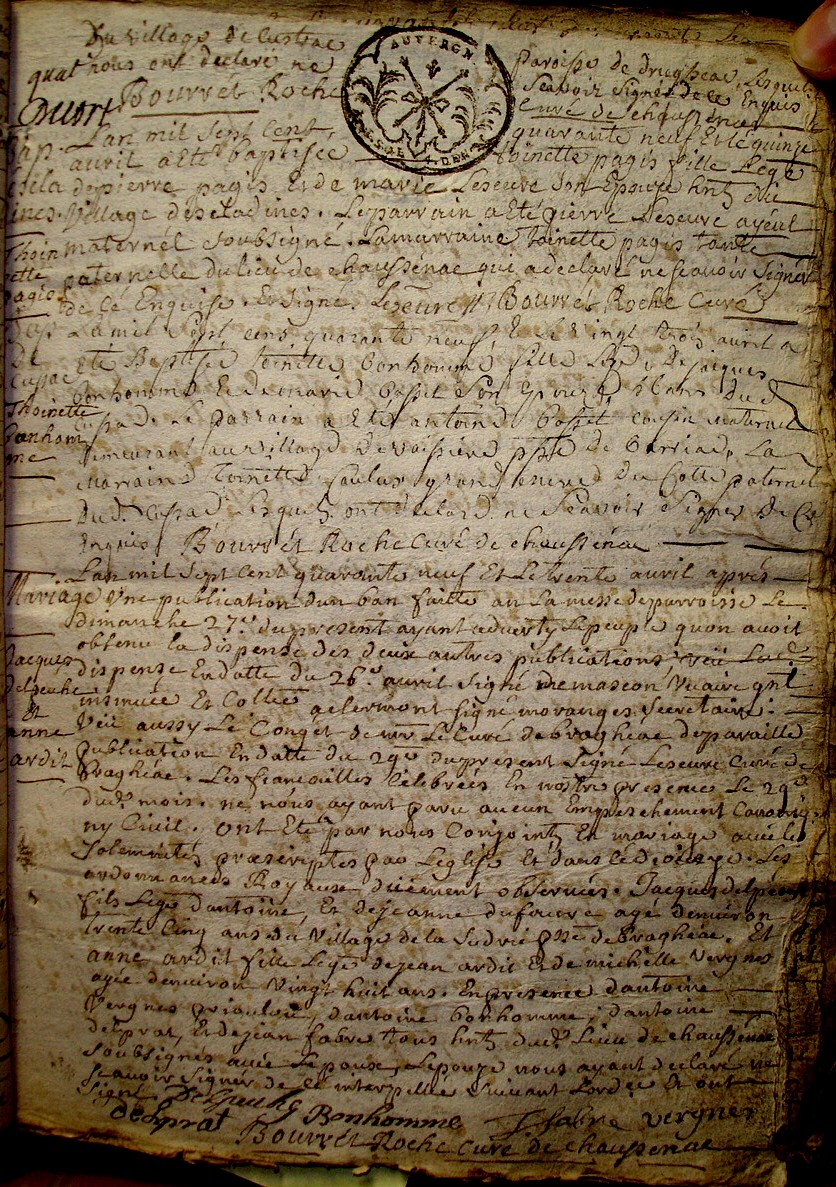 du village de Custrac paroisse de drugheac, Lesquels
quat nous ont declaré ne Scavoir Signer de ce Enquis
Bourrét Roche Curé de chaussenac
AUVERGN
Lan mil Sept Cent quarante neuf Et le quinze
bap. avril a Eté baptisée toinette pagis fille Lege
de pierre pagis Et de marie Leseure Son Epouse hnts du
village descladines. Le parrain a Eté pierre Leseure ayeul
Thoin maternel Soubsigné. La marraine toinette pagis tante
ette paternelle du lieu de chaussenac qui a declaré ne Scavoir Signer
pagis de ce Enquise. Et Signé. Leseure Bourrét Roche Curé
Lan mil Sept Cens quarante neuf Et le vingt trois avril a
De Eté Baptisée toinette bonhomme fille Leg. de jacques
Cussac bonhomme Et de marie basset Son Epouse, hans dud
Thoinette Cussac. Le parrain a Eté antoine basset cousin maternel
bonhom demeurant au village de Vaissiere psse de barriac, La
me marraine toinette grand du Cotté paternel
dud. Cussac Lesquels ont declaré ne Scavoir Signer de Ce
Enquis. Bourrét Roche Curé de chaussenac
Lan mil Sept Cent quarante neuf Et Le trente avril aprés
Mariage Une publication dun ban faitte a La messe de parroisse Le
dimanche 27e. du present ayant adverty Le peuple quon avoit
obtenu la dispense des deux autres publications veü Lad.
Jacques dispense En datte du 26e. avril Signé de mascon Vicaire gnl
delpeuhe insinuée Et Collée a clermont Signé moranges Secretaire.
Et Veü aussy Le Congét de mr. Le Curé de braghéac de pareille
anne publication En datte du 29e. du present Signé Leseure Curé de
ardit Braghéac. Les fiancailles Celebrées En nostre presence Le 29e
dud. mois. ne nous ayant paru aucun Empeschement Canoniq
ny Civil. ont Eté par nous Conjoints En mariage avec les
Solemnités prescriptes par Leglise Et dans ce diocese. Les
ordonnances Royaux düement observées. Jacques delpeuhe
fils Lege d'antoine, Et de jeanne dufaure agé denviron
trente Cinq ans du Village de la Sudrie psse de braghéac. Et
anne ardit fille Lege de jean ardit Et de michelle Vergnes
agée denviron Vingt huit ans. En presence d'antoine
Vergnes, d'antoine bonhomme, d'antoine
delprat, Et de jean fabre tous hnts dud. Lieu de chaussenac
Soubsignés avec Lepoux, Lepouse nous ayant declaré ne
Scavoir Signer de ce interpellée Suivant Lordce Et ont
Signé Delpeuhe
delprat Bonhomme J fabre vergnes
Bourrét Roche curé de chaussenac